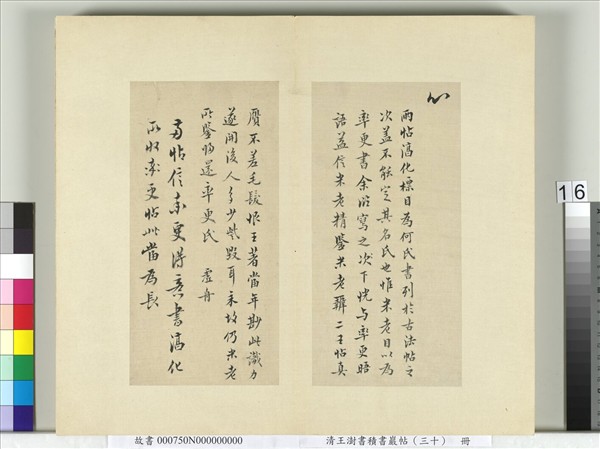 兩帖淳化標目為何氏書列於古法帖之
次蓋不能定其名氏也惟米老目以為
率更書余臨寫之次下恍與率更晤
語益信米老精鑒米老辨二王帖真
贗不差毛髮恨王著當年尠此識力
遂開後人多少訾毀耳未故仍米老
所鑒歸還率更氏 虛舟
帖信率更得意書淳化
所收率更帖此當為長
16
故書 000750N000000000
清王澍書積書巖帖（三十） 冊